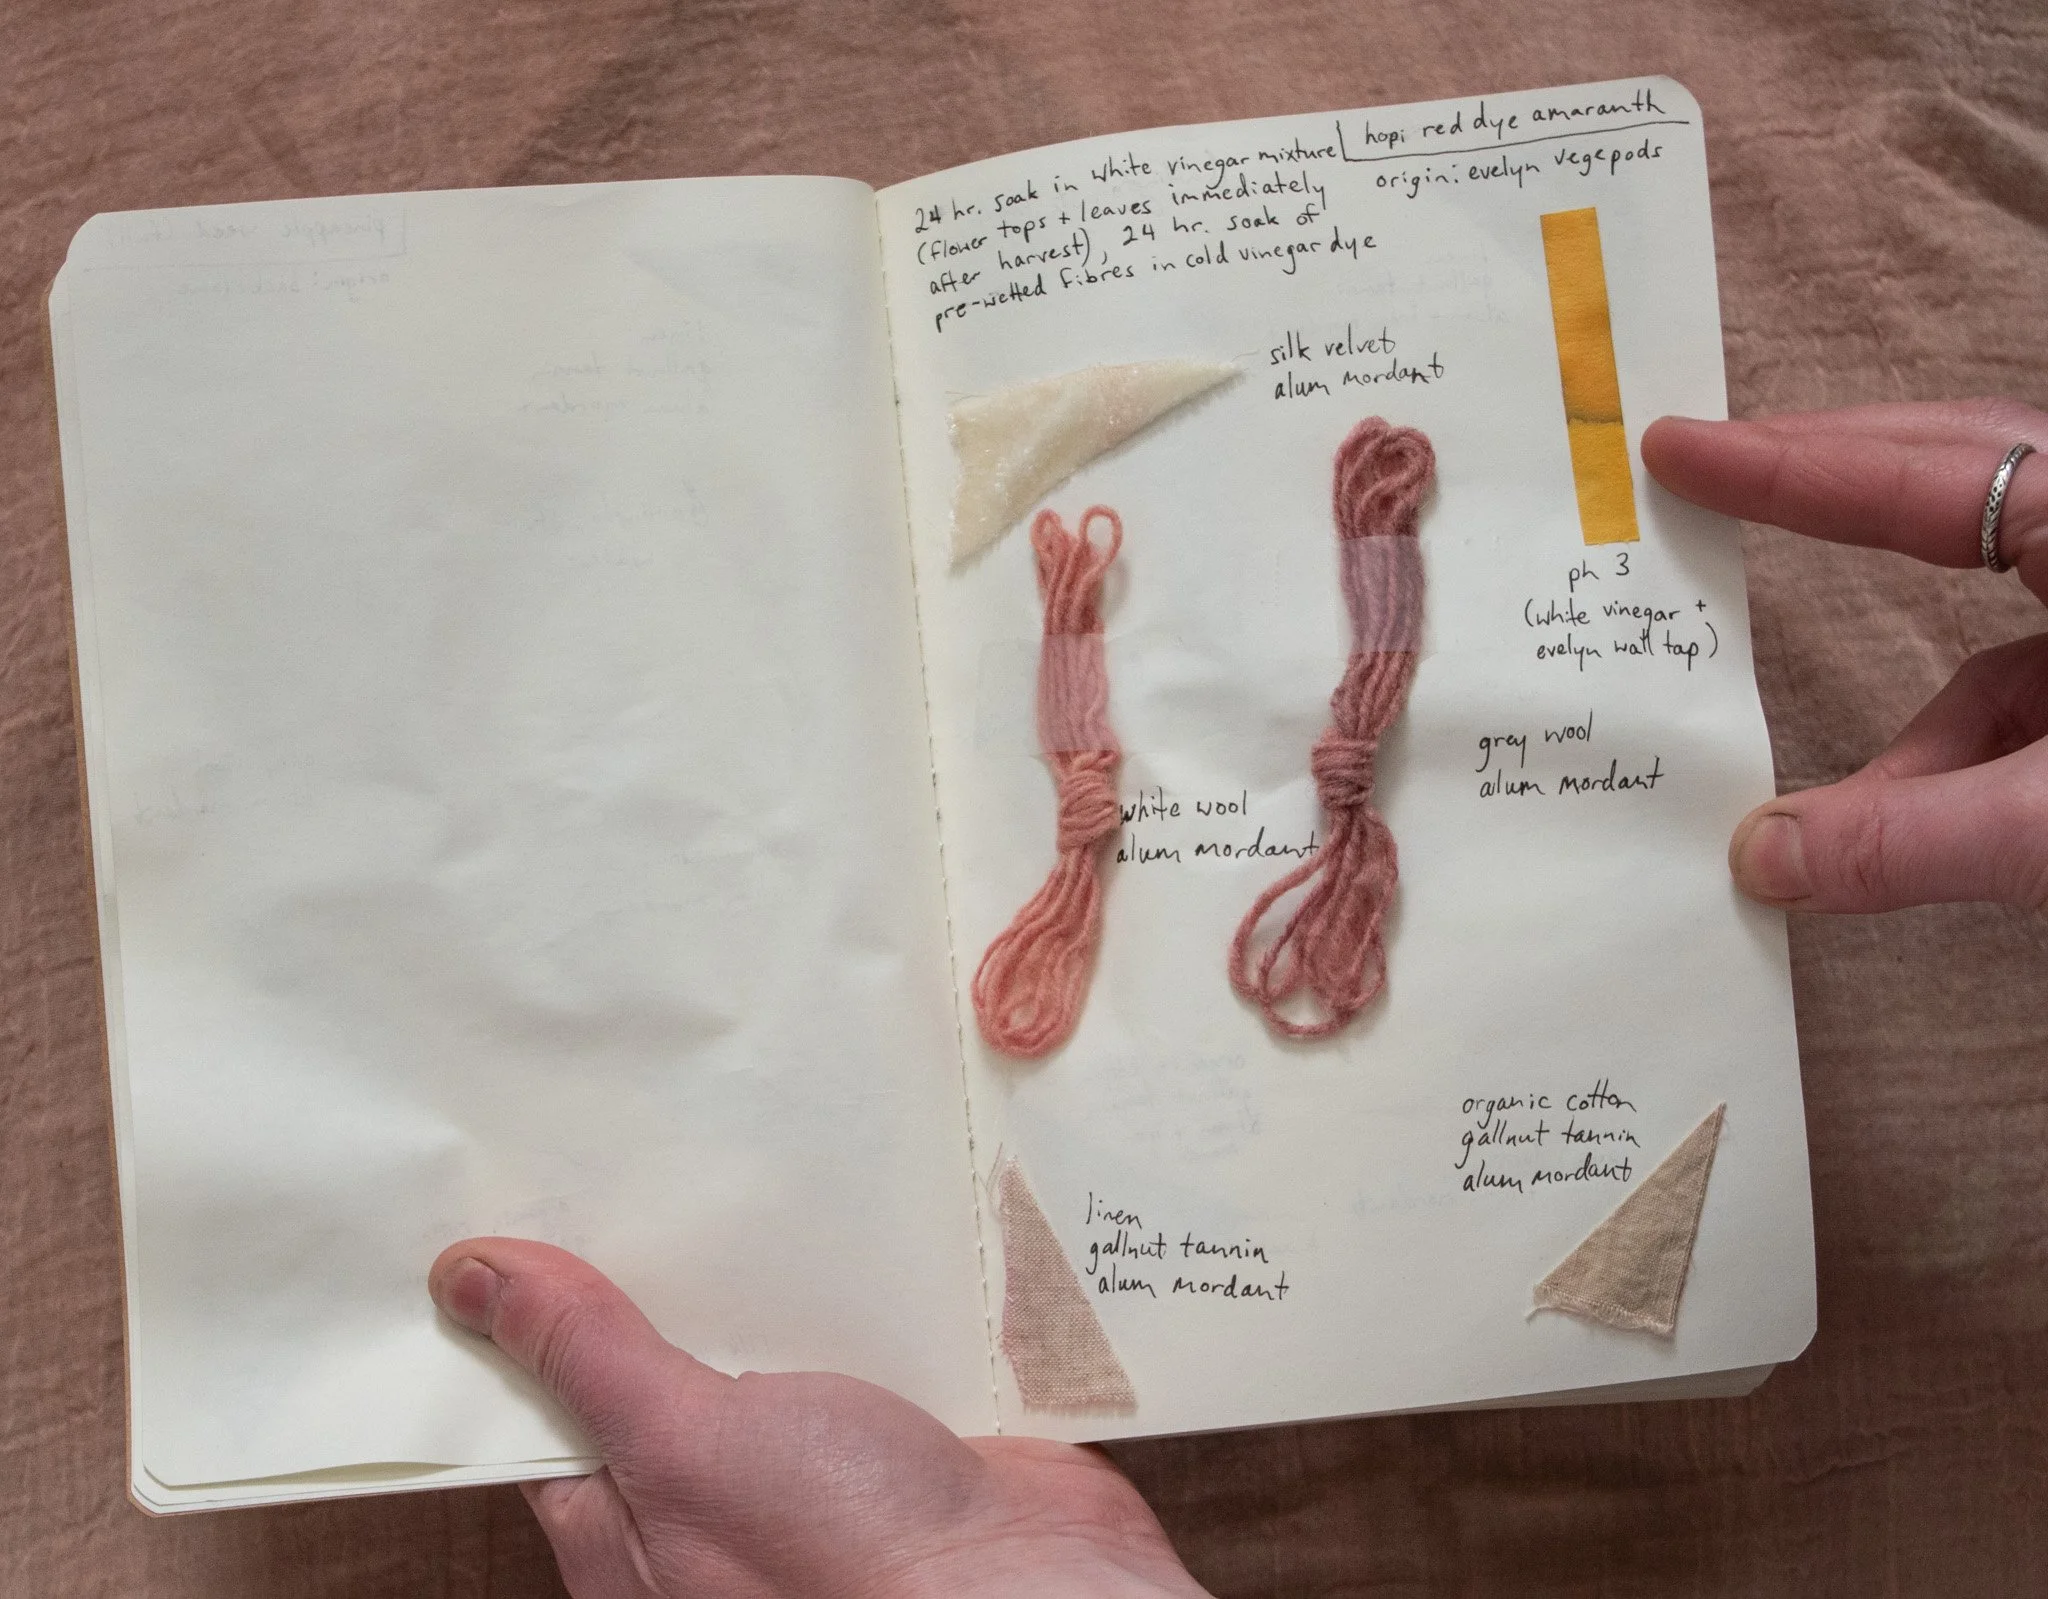 hopi red dye amaranth
origin: evelyn vegepods
24 hr. soak in white vinegar mixture
(flower tops + leaves immediately
after harvest), 24 hr. soak of
pre-wetted fibres in cold vinegar dye
silk velvet
alum mordant
ph 3
(white vinegar +
evelyn wall tap)
grey wool
alum mordant
white wool
alum mordant
organic cotton
gallnut tannin
alum mordant
linen
gallnut tannin
alum mordant